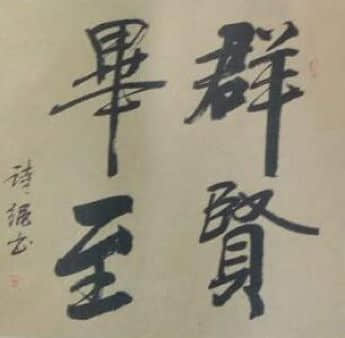 群賢
畢至
詩書